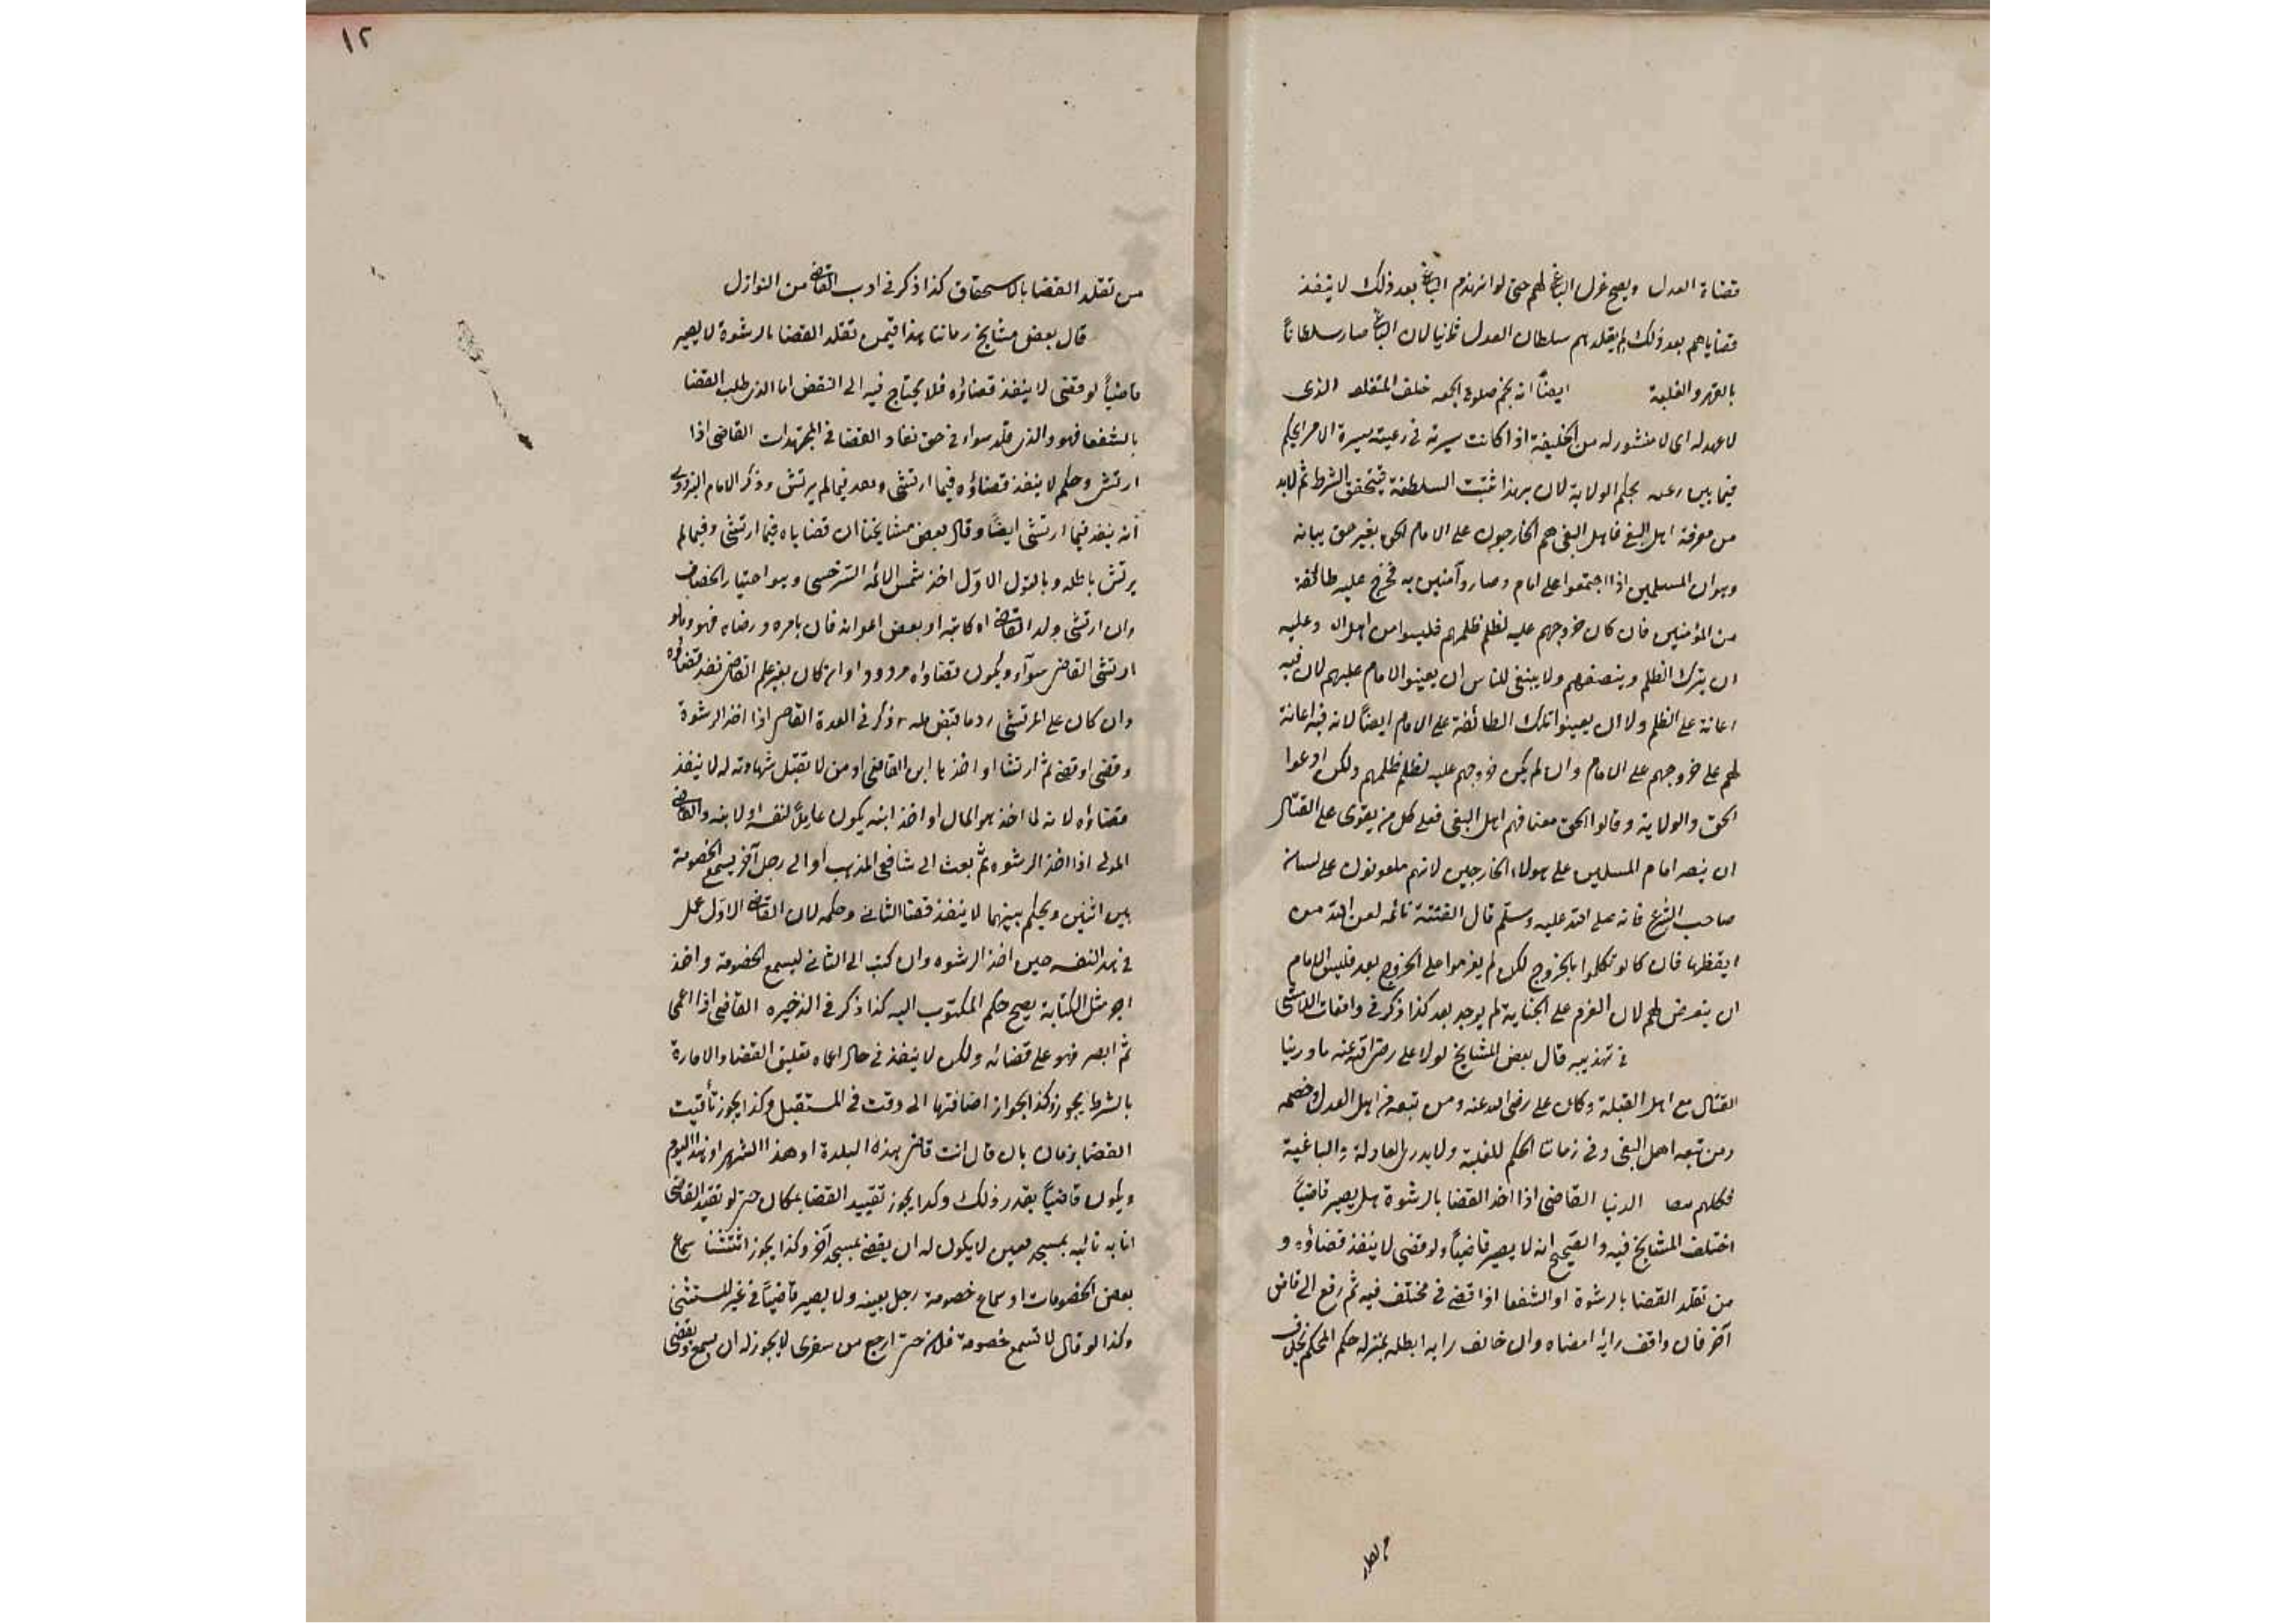 قضاة العدل ويصح عزل الباغي لهم حتى لو انهزم الباغي بعد ذلك لا ينفذ
قضاياهم بعد ذلك لم يقلدهم سلطان العدل ثانيا لان الباغي صار سلطاناً
بالقهر والغلبة ايضاً انه يجوز صلوة الجمعه خلف المتغلب الذى
لا عهد له اى لا منشور له من الخليفة اذا كانت سيرته فى رعيته سيرة الامرا يحكم
فيما بين رعيته بحكم الولاية لان بهذا تثبت السلطنة فيتحقق الشرط ثم لابد
من معرفة اهل البغى فاهل البغى هم الخارجون على الامام الحق بغير حق بيانه
وهو ان المسلمين اذا اجتمعوا على امام وصاروا آمنين به فخرج عليه طائفة
من المؤمنين فان كان خروجهم عليه لظلم ظلمهم فليسوا من اهل وعليه
ان يترك الظلم وينصفهم ولا ينبغى للناس ان يعينوا الامام عليهم لان فيه
اعانة على الظلم ولا ان يعينوا تلك الطائفة على الامام ايضاً لانه فيه اعانة
لهم على خروجهم على الامام وان لم يكن خروجهم عليه لظلم ظلمهم ولكن ادعوا
الحق والولاية وقالوا الحق معنا فهم اهل البغى فعلى كل من يقوى على القتال
ان ينصر امام المسلمين على هولاء الخارجين لانهم ملعونون على لسان
صاحب الشرع فانه صلى الله عليه وسلم قال الفتنة نائمه لعن الله من
ايقظها فان كانوا تكلموا بالخروج لكن لم يعزموا على الخروج بعد فليس للامام
ان يتعرض لهم لان العزم على الجناية لم يوجد بعد كذا ذكر فى واقعات
فى تهذيبه قال بعض المشايخ لولا على رضى الله عنه ما درينا
القتال مع اهل القبلة وكان على رضى الله عنه ومن تبعه من اهل العدل وخصمه
ومن تبعه اهل البغى وفى زماننا الحكم للغلبة ولا يدرى العادلة والباغية
فكلهم الدنيا القاضى اذا اخذ القضا بالرشوة هل يصير قاضياً
اختلف المشايخ فيه والصحيح انه لا يصير قاضياً ولو قضى لا ينفذ قضاؤه و
من تقلد القضا بالرشوة او الشفعا اذا قضى فى مختلف فيه ثم رفع الى قاض
آخر فان وافق رايه امضاه وان خالف رايه ابطله بمنزلة حكم المحكم بخلاف
١٢
من تقلد القضا بالاستحقاق كذا ذكر فى ادب القاضى من النوازل
قال بعض مشايخ زماننا هذا فيمن تقلد القضا بالرشوة لا يصير
قاضياً لو قضى لا ينفذ قضاؤه فلا يحتاج فيه الى النقض اما الذى طلب القضا
بالشفعا فهو والذى قلد سواء فى حق نفاد القضا فى المجتهدات القاضى اذا
ارتشى وحكم لا ينفذ قضاؤه فيما ارتشى وبعد فيما لم يرتش وذكر الامام البزدوى
انه ينفذ فيما ارتشى ايضاً وقال بعض مشايخنا ان قضاياه فيما ارتشى وفيما لم
يرتش باطله وبالقول الاول اخذ شمس الائمه السرخسى وهو اختيار الخصاف
وان ارتشى ولد القاضى او كاتبه او بعض اعوانه فان بامره ورضايه فهو وما لو
ارتشى القاضى سوآء ويكون قضاواه مردودا وان كان بغير علم القاضى نفذ قضاؤه
وان كان على المرتشى رد ما قبض ذكر فى العدة القاضى اذا اخذ الرشوة
وقضى او قضى ثم ارتشا او اخذها ابن القاضى او من لا تقبل شهادته له لا ينفذ
قضاؤه لانه لما اخذ هو المال او اخذ ابنه يكون عاملاً لنفسه او لابنه والقاضى
المولى اذا اخذ الرشوه ثم بعث الى شافعى المذهب او الى رجل آخر يسمع الخصومة
بين اثنين ويحكم بينهما لا ينفذ قضا الثانى وحكمه لان القاضى الاول عمل
فى هذا لنفسه حين اخذ الرشوه وان كتب الى الثانى ليسمع الخصومة واخذ
اجر مثل الكتابة يصح حكم المكتوب اليه كذا ذكر فى الذخيره القاضى اذا اعمى
ثم ابصر فهو على قضائه ولكن لا ينفذ فى حال اعماه تعليق القضا والامارة
بالشرط يجوز وكذا الجواز اضافتها الى وقت فى المستقبل وكذا يجوز تأقيت
القضا بزمان بان قال انت قاض بهذه البلدة او هذا الشهر او هذا اليوم
ويكون قاضياً بقدر ذلك وكذا يجوز تقييد القضا بمكان حتى لو تقيد القاضى
انابه نائبه بمسجد معين لا يكون له ان يقضى بمسجد آخر وكذا يجوز استثنا سماع
بعض الخصومات او سماع خصومة رجل بعينه ولا يصير قاضياً فى غير المستثنى
وكذا لو قال لا تسمع خصومة فلان حتى ارجع من سفرى لا يجوز له ان يسمع ويقضى